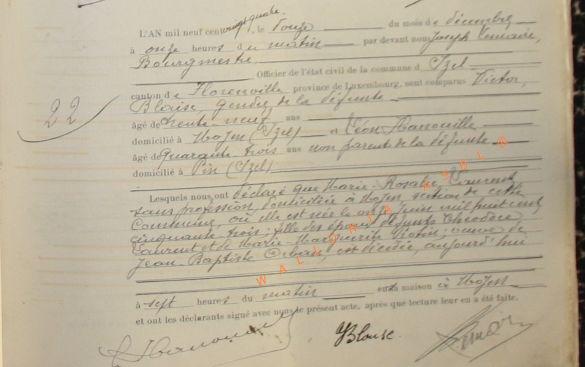 L'AN mil neuf cent vingt quatre, le douze du mois de décembre
à onze heures du matin par devant nous Joseph Lemaire,
Bourgmestre
Officier de l'état civil de la commune d'Izel
canton de Florenville province de Luxembourg, sont comparus Victor,
Blaise, gendre de la défunte
22
âgé de trente neuf ans
domicilié à Moyen (Izel) et Léon
âgé de quarante trois ans non parent de la défunte
domicilié à Pin (Izel)
Lesquels nous ont déclaré que Marie-Rosalie Laurent
sans profession domiciliée à Moyen, section de cette
Commune, où elle est née le onze juin mil huit cent
cinquante-trois; fille des époux défunts Théodore
Laurent et de Marie-Marguerite; veuve de
Jean-Baptiste est décédée, aujourd'hui
à sept heures du matin en sa maison à Moyen
et ont les déclarants signé avec nous le présent acte, après que lecture leur en a été faite.
VBlaise